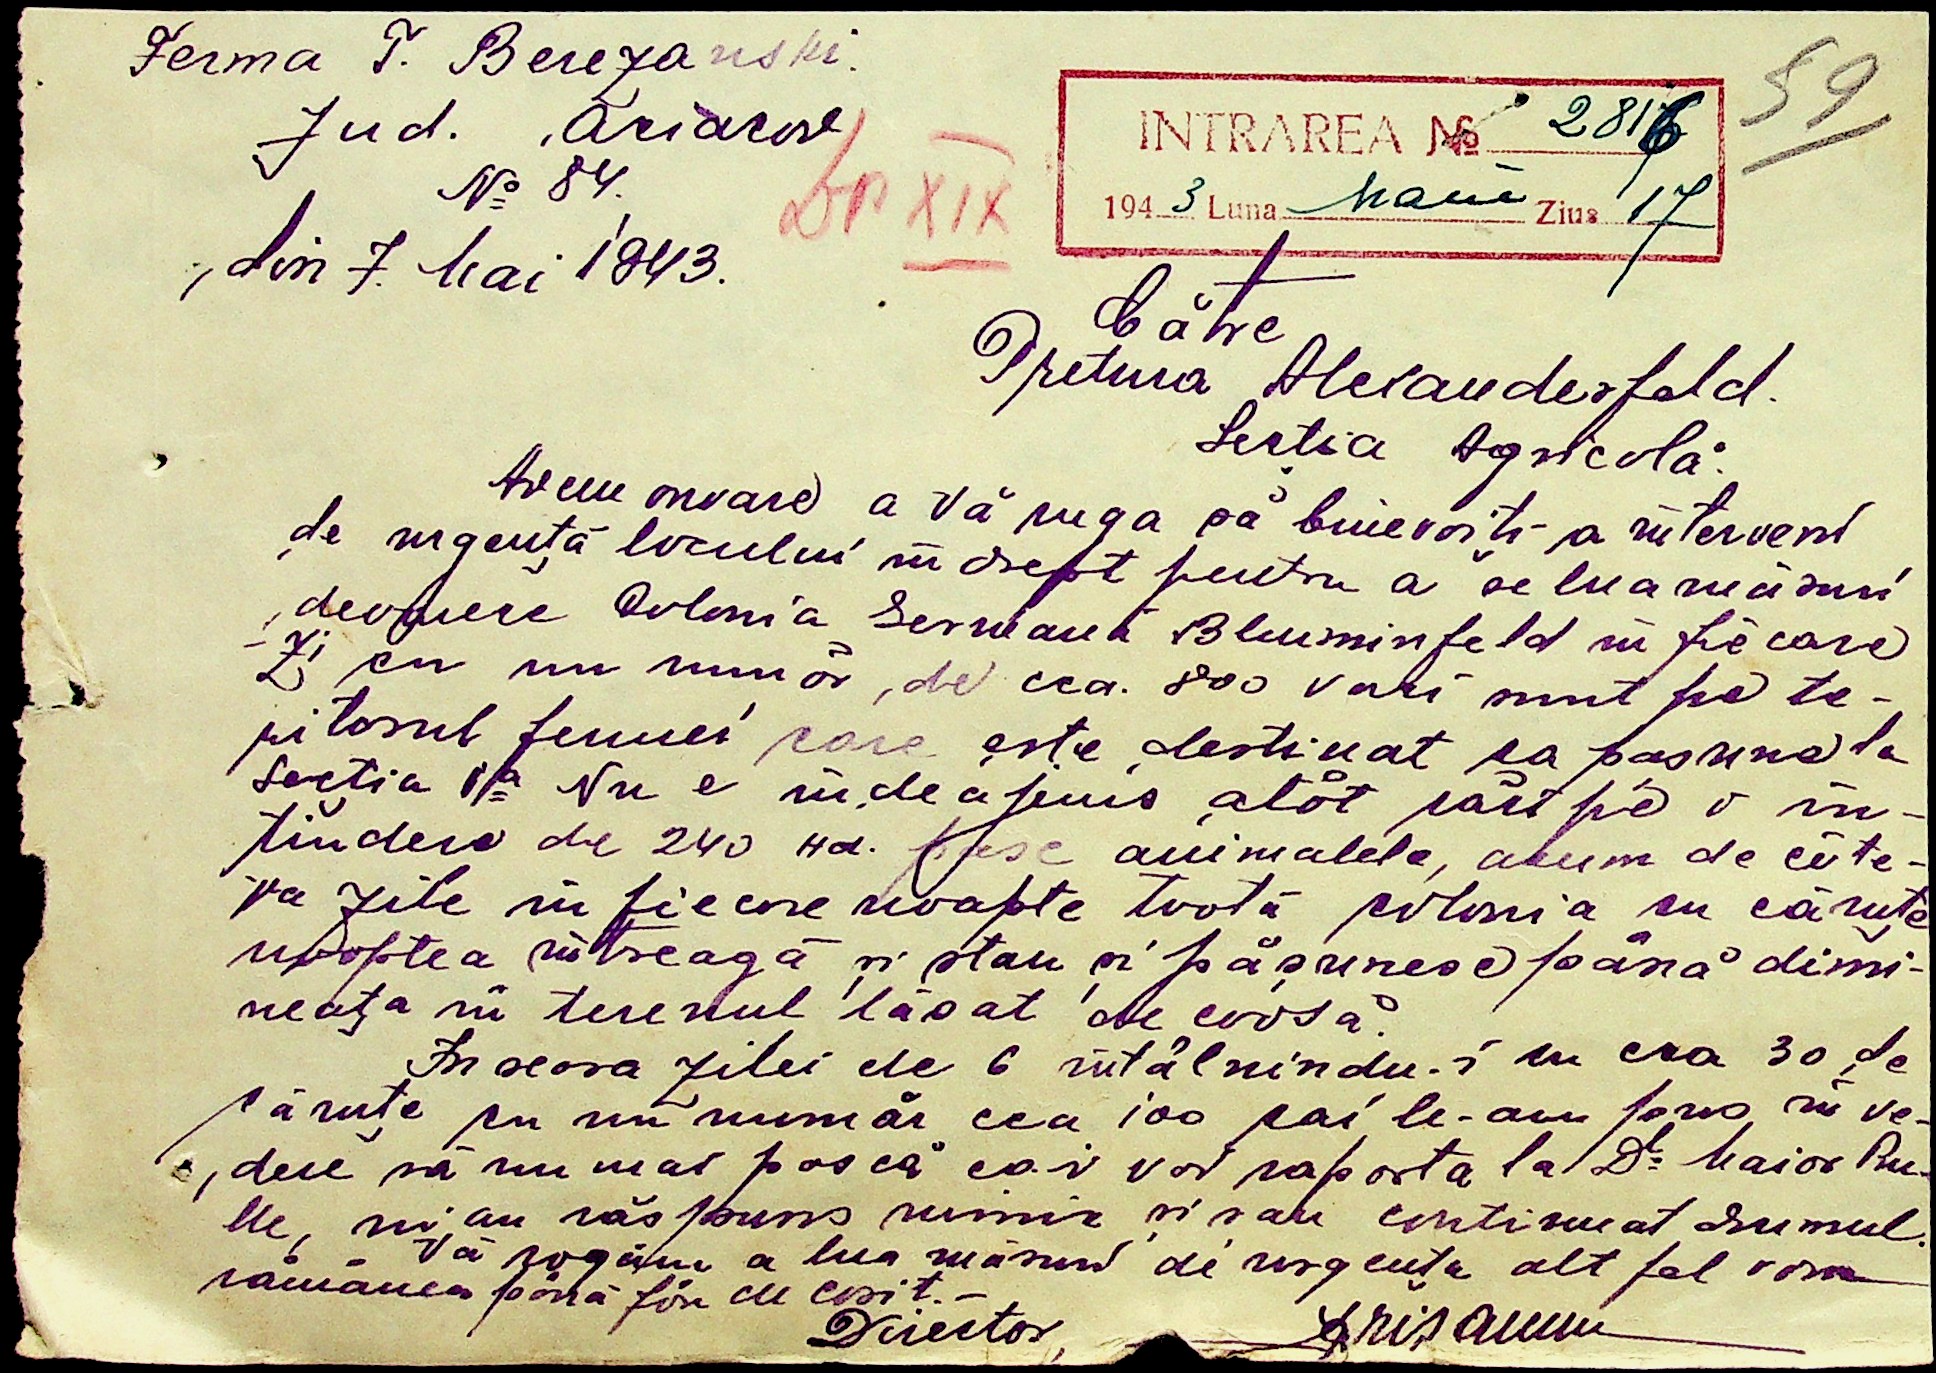 Ferma T. Berezanski.
Jud. Oceacov
№ 84.
din 7. Mai 1943.
Do XIX
INTRAREA № 2816
1943 Luna Maiu Ziua 17
59
Către
Pretura Alexanderfeld.
Secția Agricolă.
Avem onoare a Vă ruga să binevoiți a interveni
de urgență locului în drept pentru a se lua măsuri
deoarece Colonia Germană Bluminfeld în fie care
zi cu un număr de cca. 800 vaci sunt pe te-
ritorul fermei care este destinat ca pasune la
Secția Va Nu e îndeajuns atât căci pe o în-
tindere de 240 Ha. pasc animalele, acum de cîte-
va zile în fiecare noapte toată colonia cu căruțe
nooptea întreagă și stau și pășunesc până dimi-
neața în terenul lăsat de coosă.
In seara zilei de 6 întâlnindu-i cu cca 30 de
căruțe cu un număr cca 100 cai le-am pus în ve-
dere să nu mai pască ca-i voi raporta la Dl Maior
lle, nu au răspuns nimic și sau continuat drumul.
Vă rogăm a lua măsuri de urgența alt fel vom
rămânea până fân de cosit.-
Director,